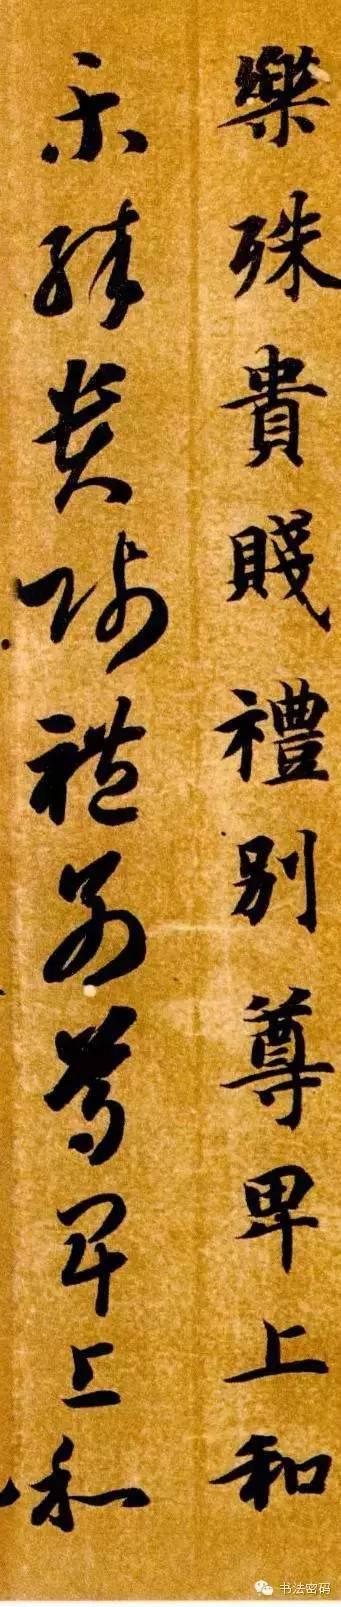 樂殊貴賤禮別尊卑上和
乐殊貴賤禮別尊卑上和
书法密码